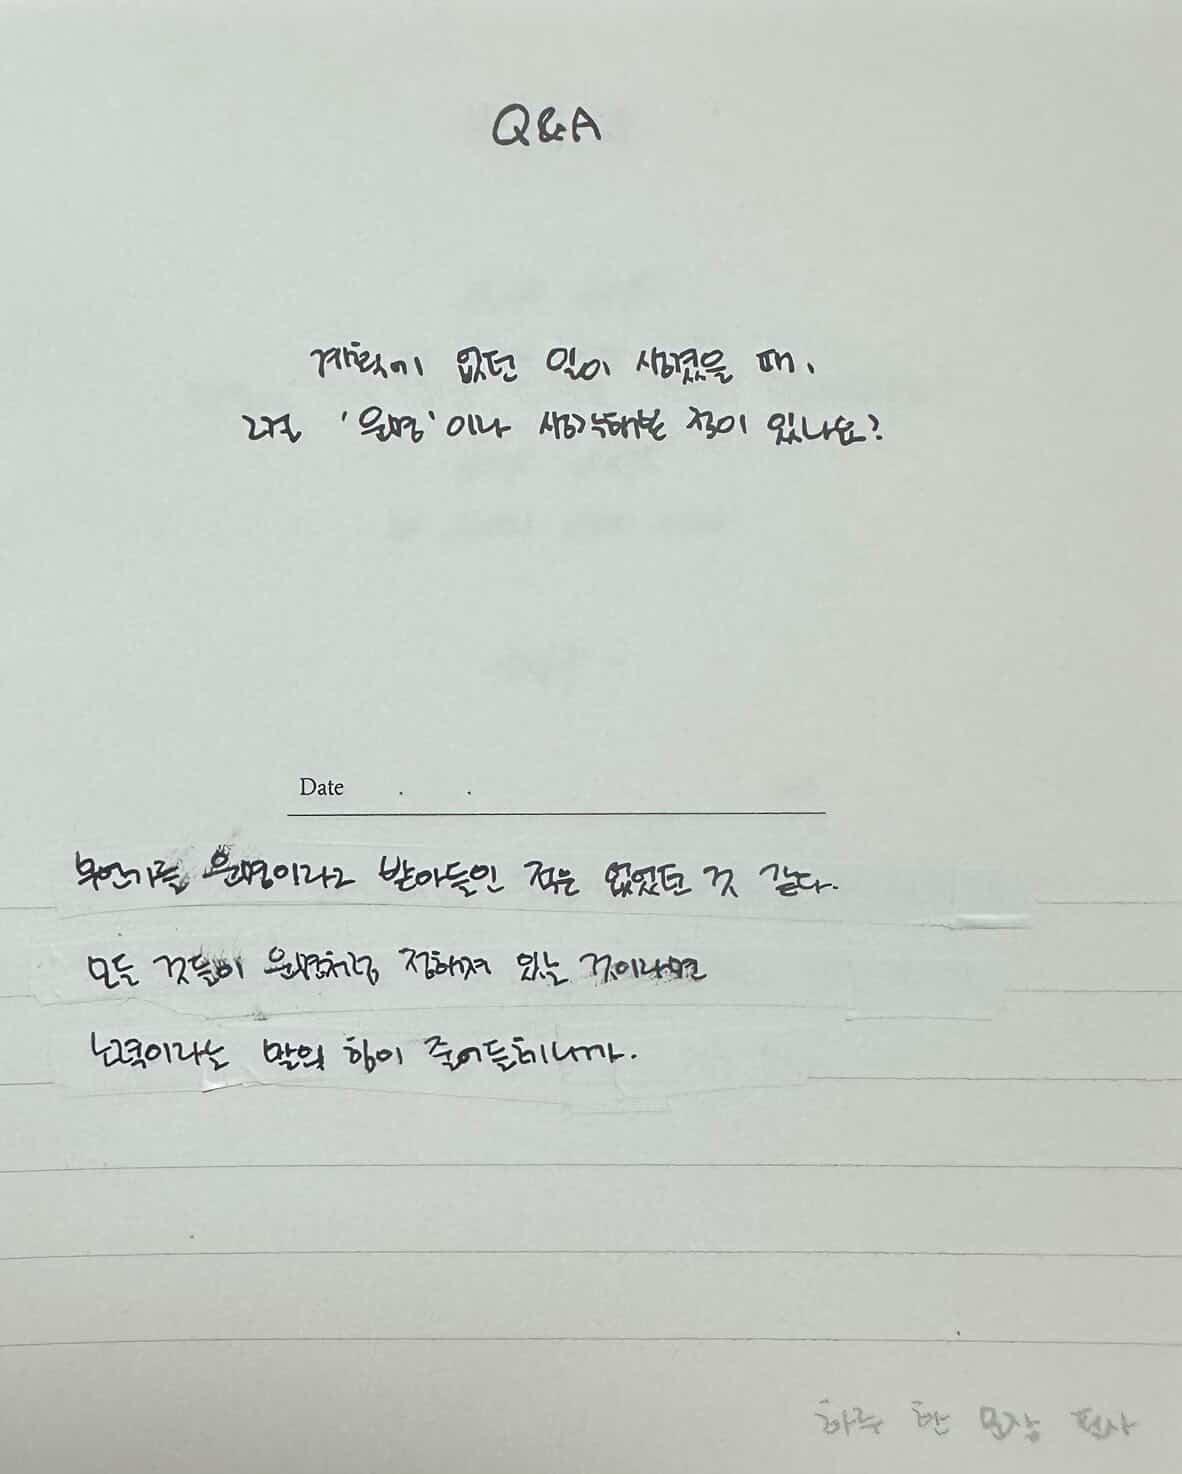 Q&A
계획이 없던 일이 생겼을 때,
그걸 '운명'이나 생각해본 적이 있나요?
Date . .
무언가를 운명이라고 받아들인 적은 없었던 것 같다.
모든 것들이 운명처럼 정해져 있는 것이라면
노력이라는 말의 힘이 줄어들테니까.
하루 한 문장 필사